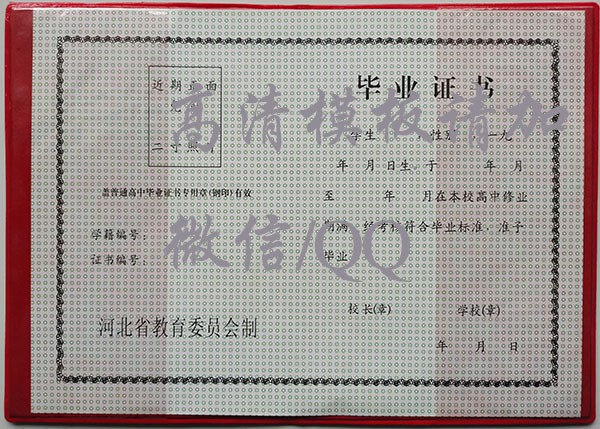 毕业证书
近期正面
二寸照片
学生 性别 一九
年 月 日生，于 年 月
盖普通高中毕业证书专用章(钢印)有效
至 年 月在本校高中修业
期满，经考核符合毕业标准，准予
毕业
学籍编号：
证书编号：
校长(章) 学校(章)
河北省教育委员会制
年 月 日
高清模板请加
微信/QQ